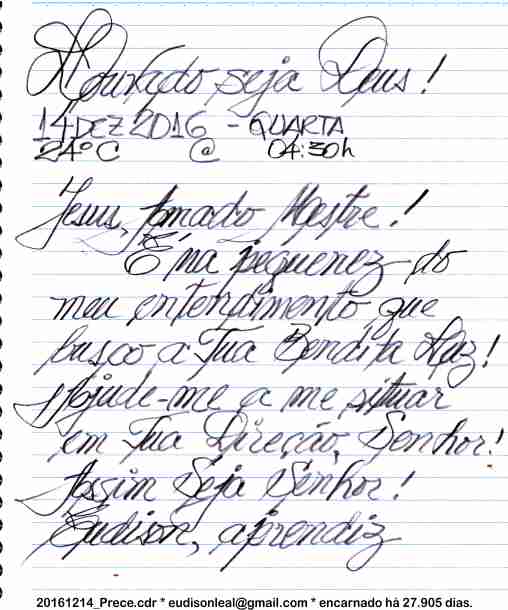 Louvado seja Deus!
14 DEZ 2016 - QUARTA
24°C @ 04:30h
Jesus, Amado Mestre!
É na pequenez do
meu entendimento que
busco a Tua Bendita Luz!
Ajude-me a me situar
em Tua Direção, Senhor!
Assim Seja Senhor!
Eudison, aprendiz
20161214_Prece.cdr * eudisonleal@gmail.com * encarnado há 27.905 dias.